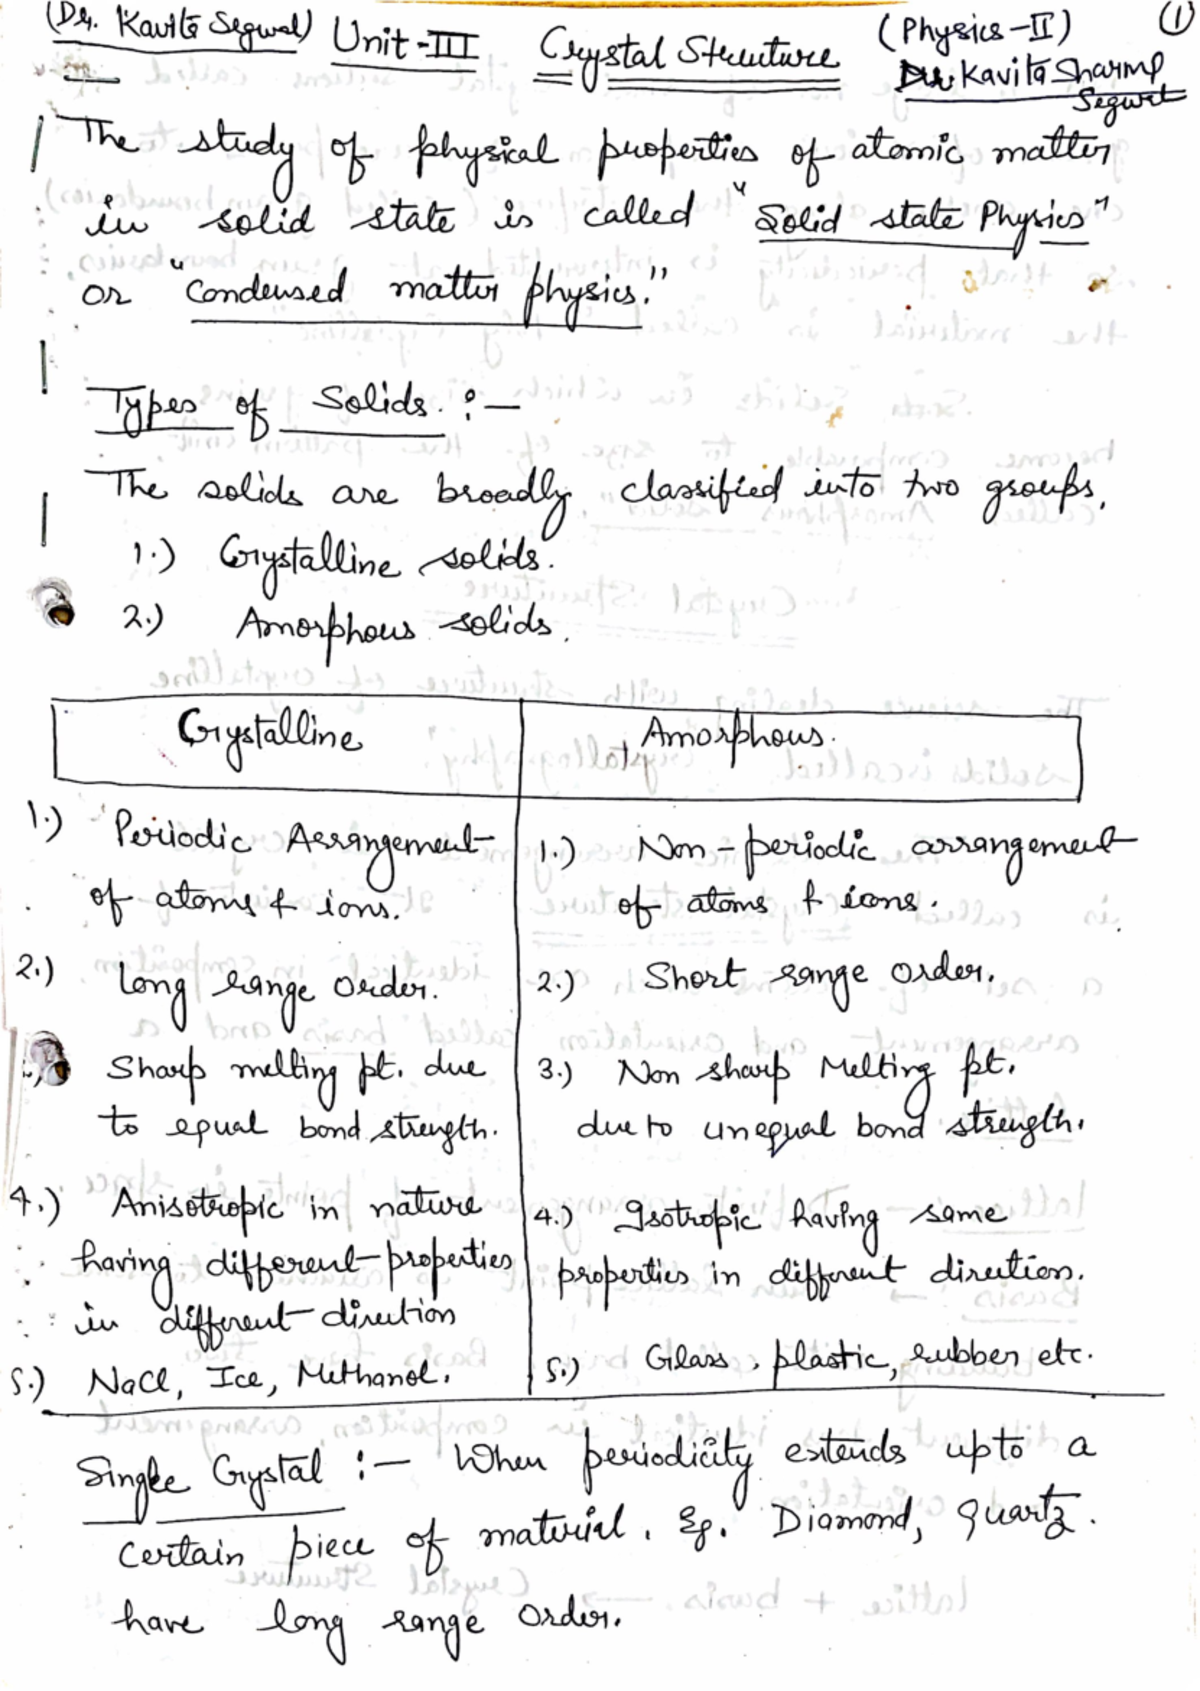 (Dr. Kavita Segwal) Unit-III Crystal Structure (Physics-II) (1)
Dr. Kavita Sharma
Segwal
The study of physical properties of atomic matter
in solid state is called "Solid state Physics"
or "Condensed matter physics."
Types of Solids :-
The solids are broadly classified into two groups.
1.) Crystalline solids.
2.) Amorphous solids.
Crystalline
Amorphous.
1.) Periodic Arrangement
of atoms & ions.
1.) Non-periodic arrangement
of atoms & ions.
2.) Long range order.
2.) Short range order.
Sharp melting pt. due
to equal bond strength.
3.) Non sharp Melting pt.
due to unequal bond strength.
4.) Anisotropic in nature
having different properties
in different direction
4.) Isotropic having same
properties in different direction.
5.) NaCl, Ice, Methanol.
5.) Glass, plastic, rubber etc.
Single Crystal :- When periodicity extends upto a
certain piece of material. Eg. Diamond, Quartz.
have long range order.